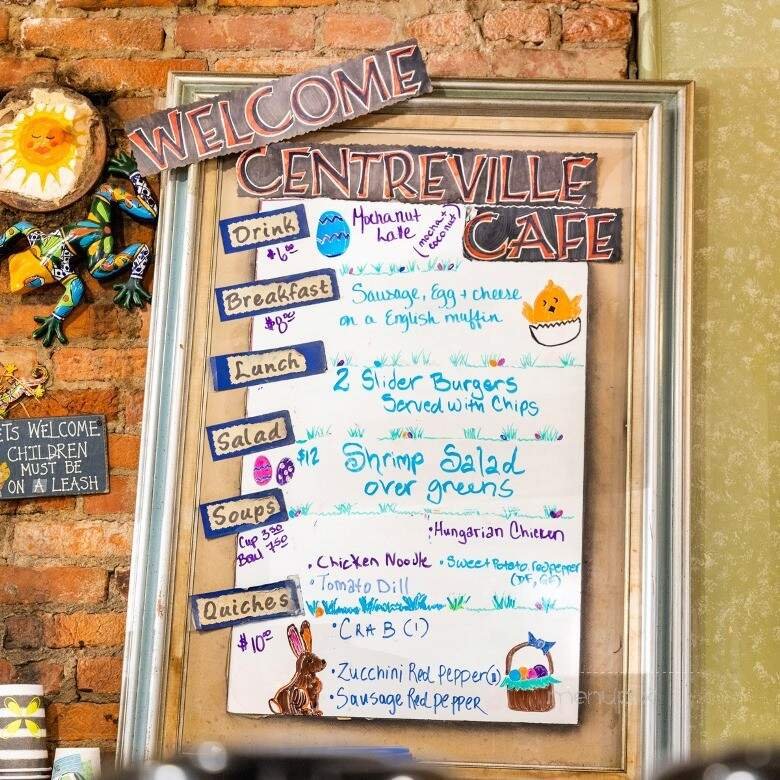 WELCOME
CENTREVILLE
CAFE
Drink
$6.00
Mochanut
Latte
(mocha +
coconut)
Breakfast
$8.00
Sausage, Egg + cheese
on a English muffin
Lunch
2 Slider Burgers
Served with Chips
Salad
$12
Shrimp Salad
over greens
Soups
Cup 3.50
Bowl 7.50
• Hungarian Chicken
• Chicken Noodle
• Sweet Potato red pepper
(DF, GF)
• Tomato Dill
Quiches
$10.00
• CRAB (1)
• Zucchini Red Pepper
• Sausage Red pepper
WELCOME
CHILDREN
MUST BE
ON A LEASH